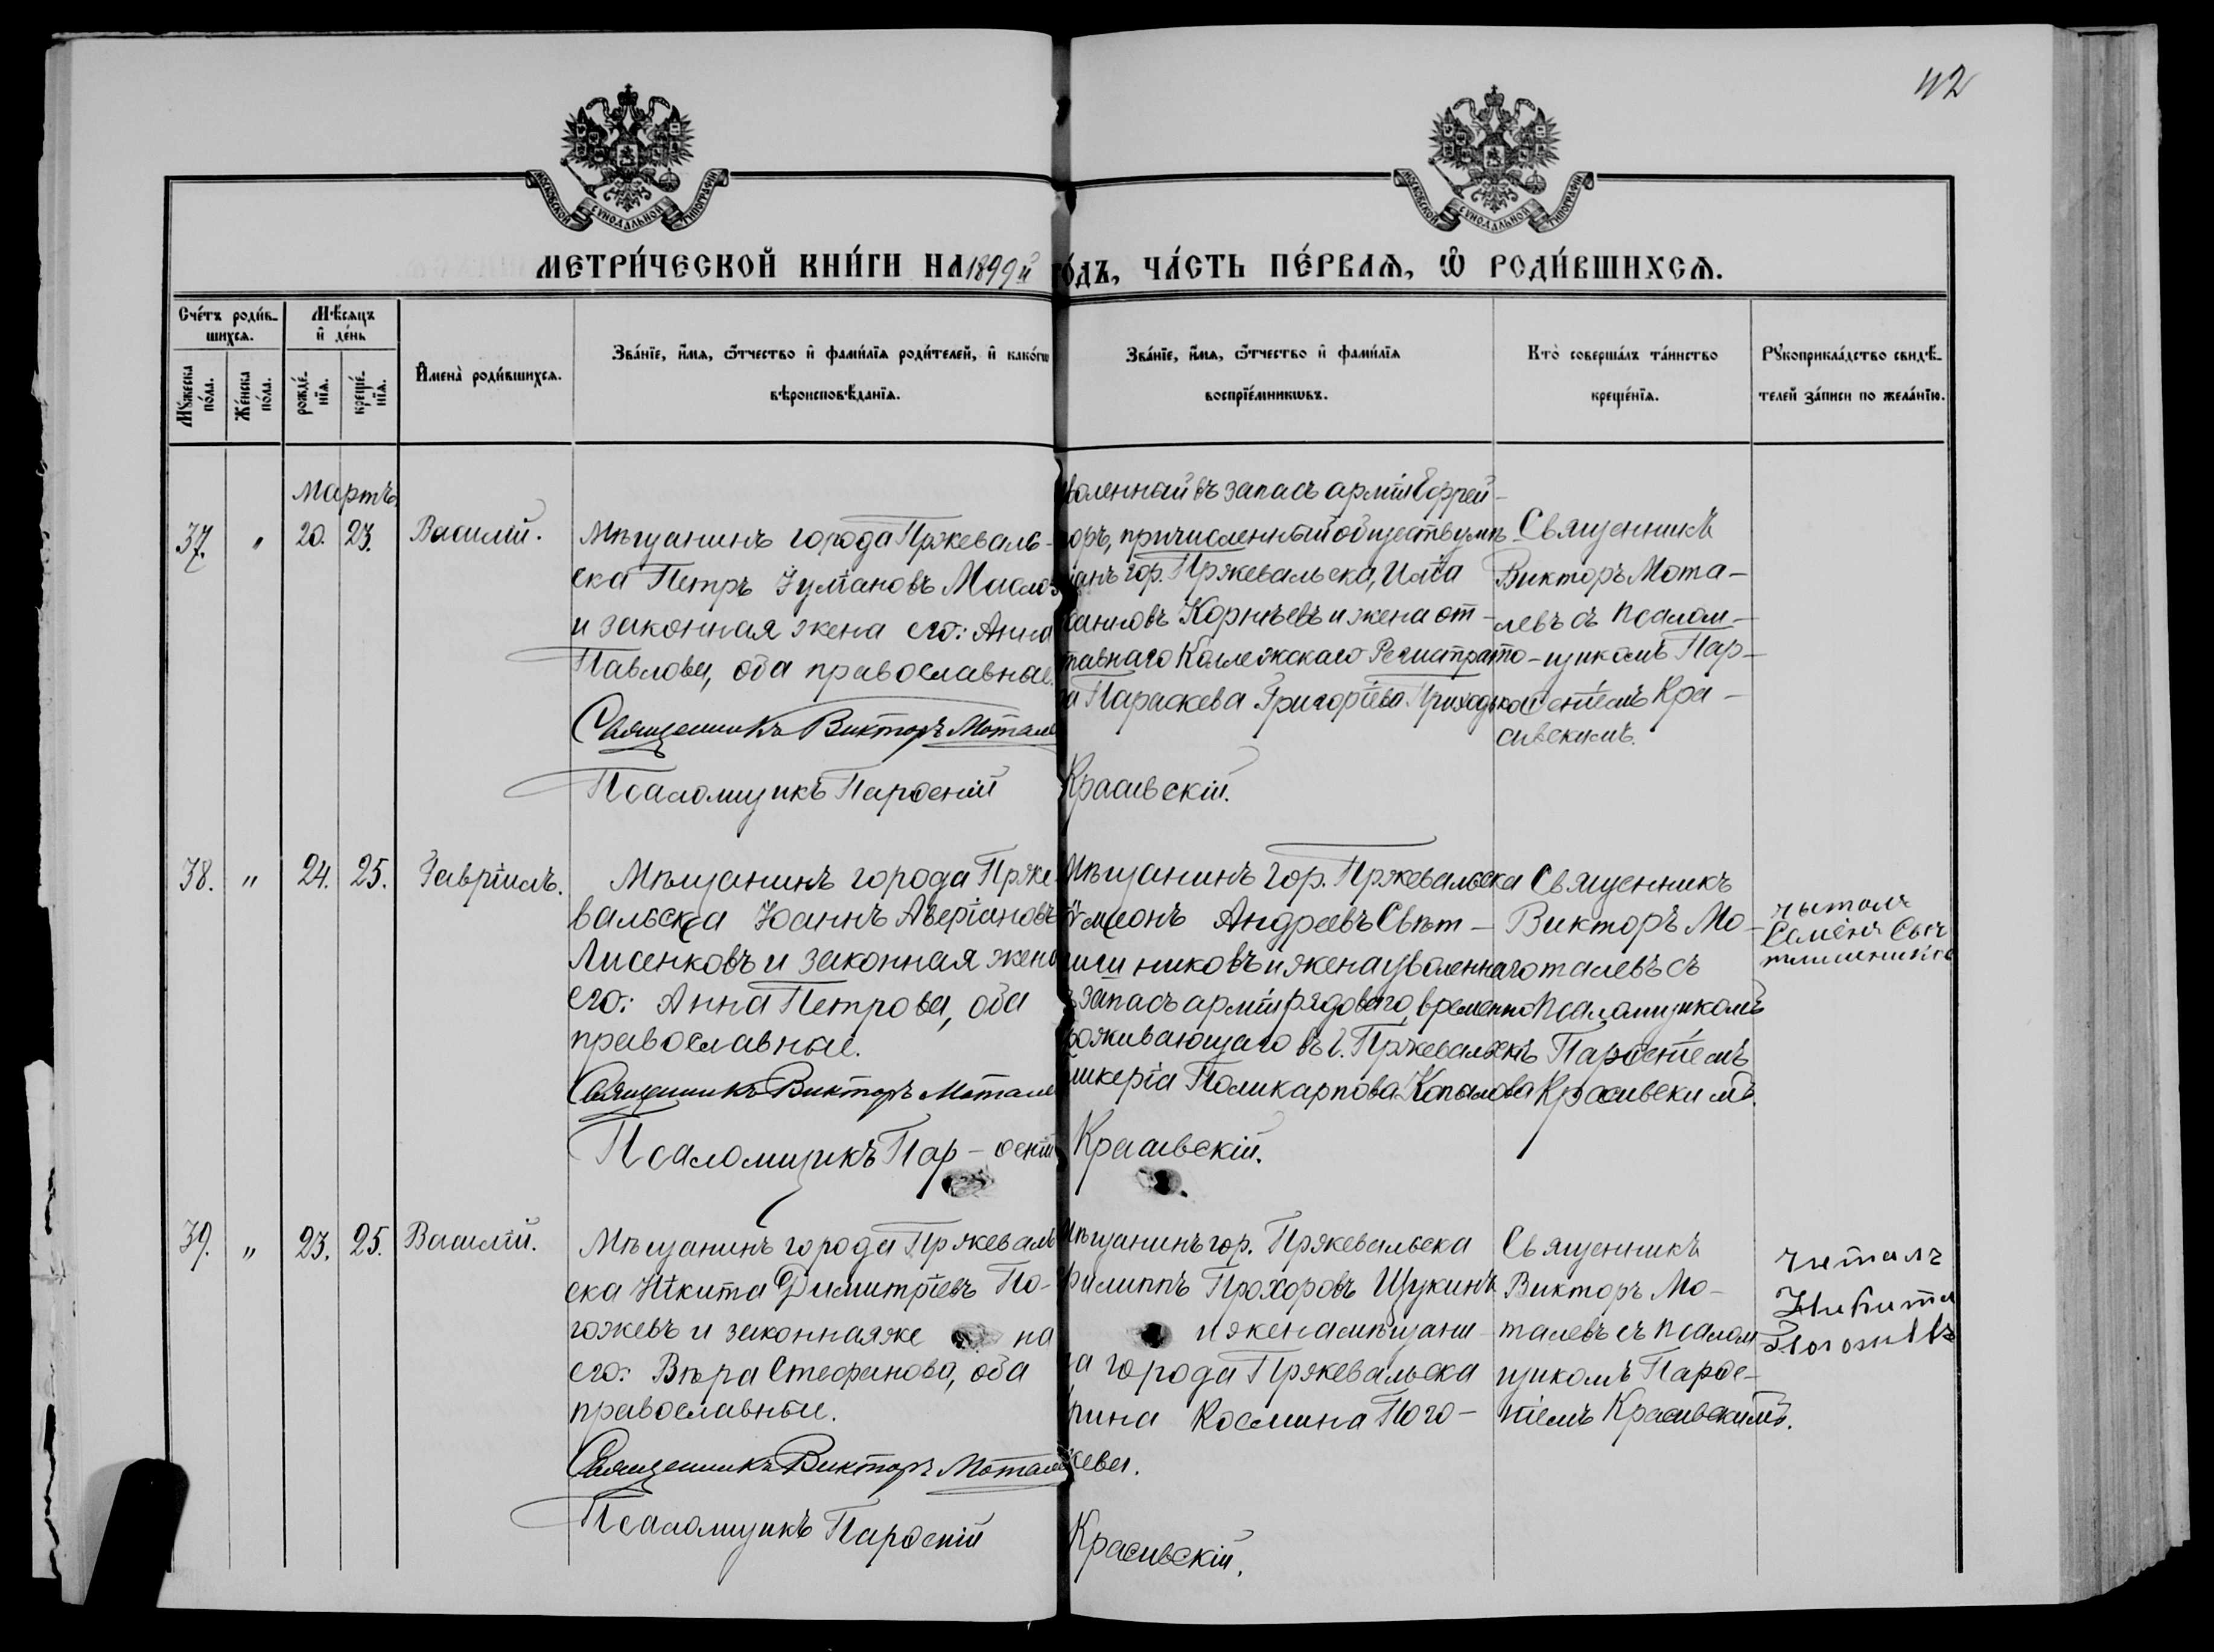 42
МОСКОВСКОЙ СѴНОДАЛЬНОЙ ТИПОГРАФІИ
МОСКОВСКОЙ СѴНОДАЛЬНОЙ ТИПОГРАФІИ
МЕТРИ́ЧЕСКОЙ КНИ́ГИ НА 1899й го́дъ, ЧА́СТЬ ПЕ́РВАѦ, Ѽ РОДИ́ВШИХСѦ.
Сче́тъ роди́в-
шихсѧ.
Мꙋ́жеска
по́ла.
Же́нска
по́ла.
Мѣ́сѧцъ
и де́нь
рожде́-
нїѧ.
креще́-
нїѧ.
И҆мена̀ роди́вшихсѧ.
Зва́нїе, и҆́мѧ, ѻ҆́тчество и҆ фами́лїѧ роди́телей, и҆ како́гѡ
вѣроисповѣ́данїѧ.
Зва́нїе, и҆́мѧ, ѻ҆́тчество и҆ фами́лїѧ
воспрїе́мникѡвъ.
Кто̀ соверша́лъ та́инство
креще́нїѧ.
Рꙋкоприкла́дство свидѣ́-
телей за́писи по жела́нїю.
Мартъ
37. " 20. 23. Василій.
Мѣщанинъ города Пржеваль-
ска Петръ Іуліановъ Масло
и законная жена его: Анна
Павлова, оба православные.
Священникъ Викторъ Мотале
Псаломщикъ Парѳеній Красивскій.
воленный въ запасъ арміи Ефрей-
оръ, причисленный обществу мѣ-
анъ гор. Пржевальска, Илія
Корнѣевъ и жена от-
тавнаго Коллежскаго Регистрато-
а Параскева Григоріева Приходько
Священникъ
Викторъ Мота-
левъ съ псалом-
щикомъ Пар-
ѳеніемъ Кра-
сивскимъ.
38. " 24. 25. Гавріилъ.
Мѣщанинъ города Прже-
вальска Іоаннъ Аверіановъ
Лисенковъ и законная жена
его: Анна Петрова, оба
православные.
Священникъ Викторъ Мотале
Псаломщикъ Пар-ѳеній Красивскій.
Мѣщанинъ гор. Пржевальска
Симеонъ Андреевъ Свѣт-
никовъ и жена уволеннаго
запасъ арміи рядового, временно
роживающаго въ г. Пржевальскѣ
ликерія Поликарпова Копылова
Священникъ
Викторъ Мо-
талевъ съ
псаломщикомъ
Парѳеніемъ
Красивскимъ.
читалъ
Семенъ
39. " 23. 25. Василій.
Мѣщанинъ города Пржеваль
ска Никита Димитріевъ По-
гожевъ и законная же на
его: Вѣра Стефанова, оба
православные.
Священникъ Викторъ Мотале
Псаломщикъ Парѳеній Красивскій.
Мѣщанинъ гор. Пржевальска
Филиппъ Прохоровъ Щукинъ
и жена мѣщани-
на города Пржевальска
рина Космина Пого-
жева.
Священникъ
Викторъ Мо-
талевъ съ псалом
щикомъ Парѳе-
ніемъ Красивскимъ.
читалъ
Никита
Погожевъ